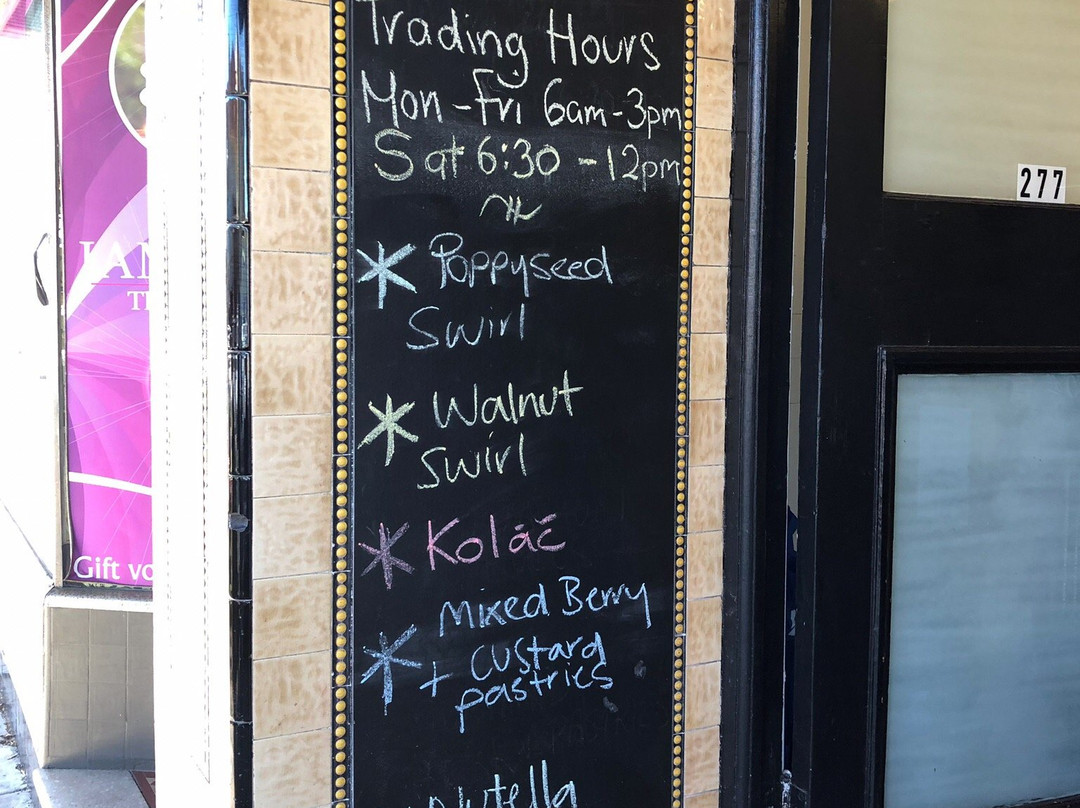 Trading Hours
Mon - Fri 6am - 3pm
Sat 6:30 - 12pm
* Poppyseed
Swirl
* Walnut
Swirl
* Koláč
Mixed Berry
* + custard
pastries
Nutella
277
Gift